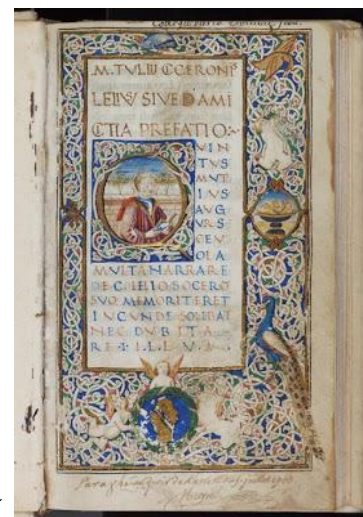 .M. TVLII CICERONIS
LELIVS SIVE D AMI
CITIA PREFATIO:
VIN
TVS
MVT
IVS
AVG
VR S
CEV
OLA
MVLTA NARRARE
DE C. LELIO SOCERO
SVO MEMORITER ET
IVCVNDE SOLEBAT
NEC DVBITA
RE ILLVM